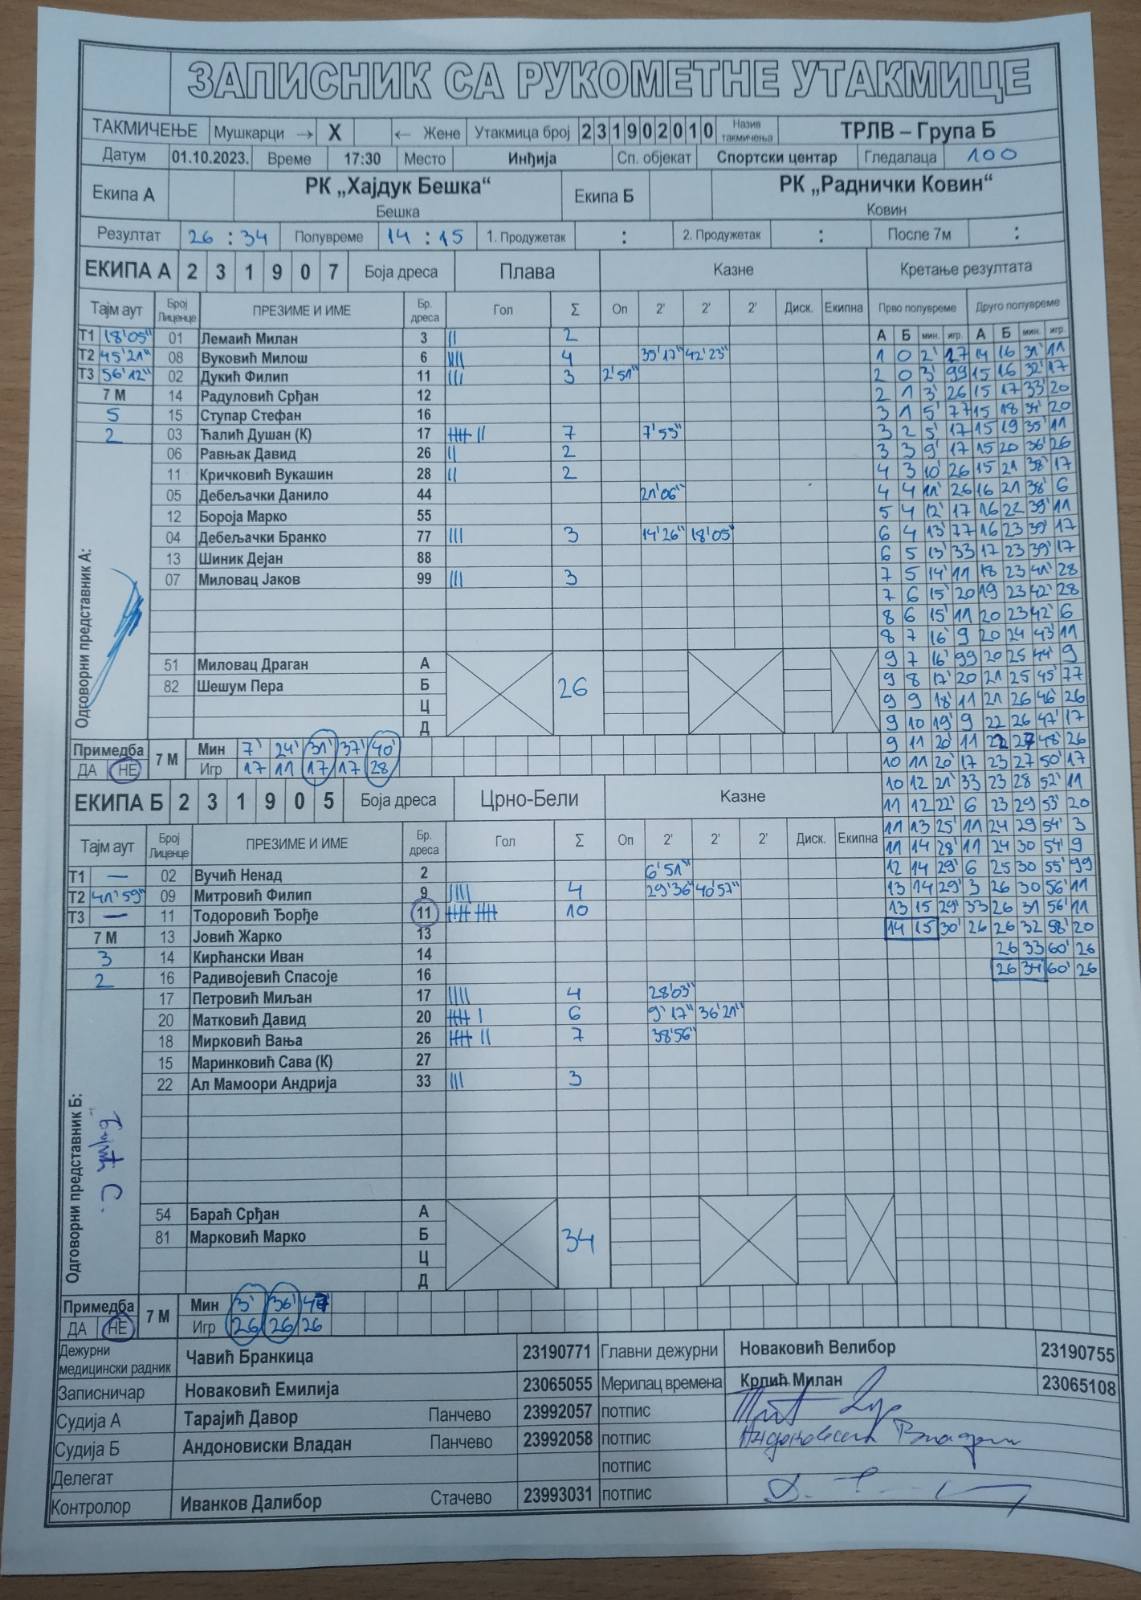 ЗАПИСНИК СА РУКОМЕТНЕ УТАКМИЦЕ
ТАКМИЧЕЊЕ Мушкарци → X ← Жене Утакмица број 231902010 Назив такмичења ТРЛВ – Група Б
Датум 01.10.2023. Време 17:30 Место Инђија Сп. објекат Спортски центар Гледалаца 100
Екипа А РК „Хајдук Бешка“ Бешка Екипа Б РК „Раднички Ковин“ Ковин
Резултат 26 : 34 Полувреме 14 : 15 1. Продужетак : 2. Продужетак : После 7м :
ЕКИПА А 2 3 1 9 0 7 Боја дреса Плава Казне Кретање резултата
Тајм аут Број Лиценце ПРЕЗИМЕ И ИМЕ Бр. дреса Гол Σ Оп 2' 2' 2' Диск. Екипна Прво полувреме Друго полувреме
А Б мин. игр. А Б мин. игр.
Т1 18'05" 01 Лемаић Милан 3 || 2
Т2 45'21" 08 Вуковић Милош 6 |||| 4 35'17" 42'23"
Т3 56'12" 02 Дукић Филип 11 ||| 3 2'51"
7 М 14 Радуловић Срђан 12
5 15 Ступар Стефан 16
2 03 Ћалић Душан (К) 17 |||| || 7 7'53"
06 Равњак Давид 26 || 2
11 Кричковић Вукашин 28 || 2
05 Дебељачки Данило 44 21'06"
12 Бороја Марко 55
04 Дебељачки Бранко 77 ||| 3 14'26" 18'05"
13 Шиник Дејан 88
07 Миловац Јаков 99 ||| 3
51 Миловац Драган А
82 Шешум Пера Б 26
Ц
Д
Одговорни представник А:
Примедба ДА НЕ 7 М
Мин 7' 24' 31' 37' 40'
Игр 17 11 17 17 28
1 0 2' 17 14 16 31' 11
2 0 3' 99 15 16 32' 17
2 1 3' 26 15 17 33' 20
3 1 5' 77 15 18 34' 20
3 2 5' 17 15 19 35' 11
3 3 9' 17 15 20 36' 26
4 3 10' 26 15 21 38' 17
4 4 11' 26 16 21 38' 6
5 4 12' 17 16 22 39' 11
6 4 13' 77 16 23 39' 17
6 5 13' 33 17 23 39' 17
7 5 14' 11 18 23 41' 28
7 6 15' 20 19 23 42' 28
8 6 15' 11 20 23 42' 6
8 7 16' 9 20 24 43' 11
9 7 16' 99 20 25 44' 9
9 8 17' 20 21 25 45' 77
9 9 18' 11 21 26 46' 26
9 10 19' 9 22 26 47' 17
9 11 20' 11 22 27 48' 26
10 11 20' 17 23 27 50' 17
10 12 21' 33 23 28 52' 11
11 12 22' 6 23 29 53' 20
11 13 25' 11 24 29 54' 3
11 14 28' 11 24 30 54' 9
12 14 29' 6 25 30 55' 99
13 14 29' 3 26 30 56' 11
13 15 29' 33 26 31 56' 11
14 15 30' 26 26 32 58' 20
26 33 60' 26
26 34 60' 26
ЕКИПА Б 2 3 1 9 0 5 Боја дреса Црно-Бели Казне
Тајм аут Број Лиценце ПРЕЗИМЕ И ИМЕ Бр. дреса Гол Σ Оп 2' 2' 2' Диск. Екипна
Т1 — 02 Вучић Ненад 2 6'51"
Т2 41'59" 09 Митровић Филип 9 |||| 4 29'36" 40'57"
Т3 — 11 Тодоровић Ђорђе 11 |||| |||| 10
7 М 13 Јовић Жарко 13
3 14 Кирћански Иван 14
2 16 Радивојевић Спасоје 16
17 Петровић Миљан 17 |||| 4 28'03"
20 Матковић Давид 20 |||| | 6 9'17" 36'21"
18 Мирковић Вања 26 |||| || 7 38'56"
15 Маринковић Сава (К) 27
22 Ал Мамоори Андрија 33 ||| 3
54 Бараћ Срђан А
81 Марковић Марко Б 34
Ц
Д
Одговорни представник Б:
Примедба ДА НЕ 7 М
Мин 3' 36' 47
Игр 26 26 26
Дежурни медицински радник Чавић Бранкица 23190771 Главни дежурни Новаковић Велибор 23190755
Записничар Новаковић Емилија 23065055 Мерилац времена Крлић Милан 23065108
Судија А Тарајић Давор Панчево 23992057 потпис
Судија Б Андоновиски Владан Панчево 23992058 потпис
Делегат потпис
Контролор Иванков Далибор Стачево 23993031 потпис